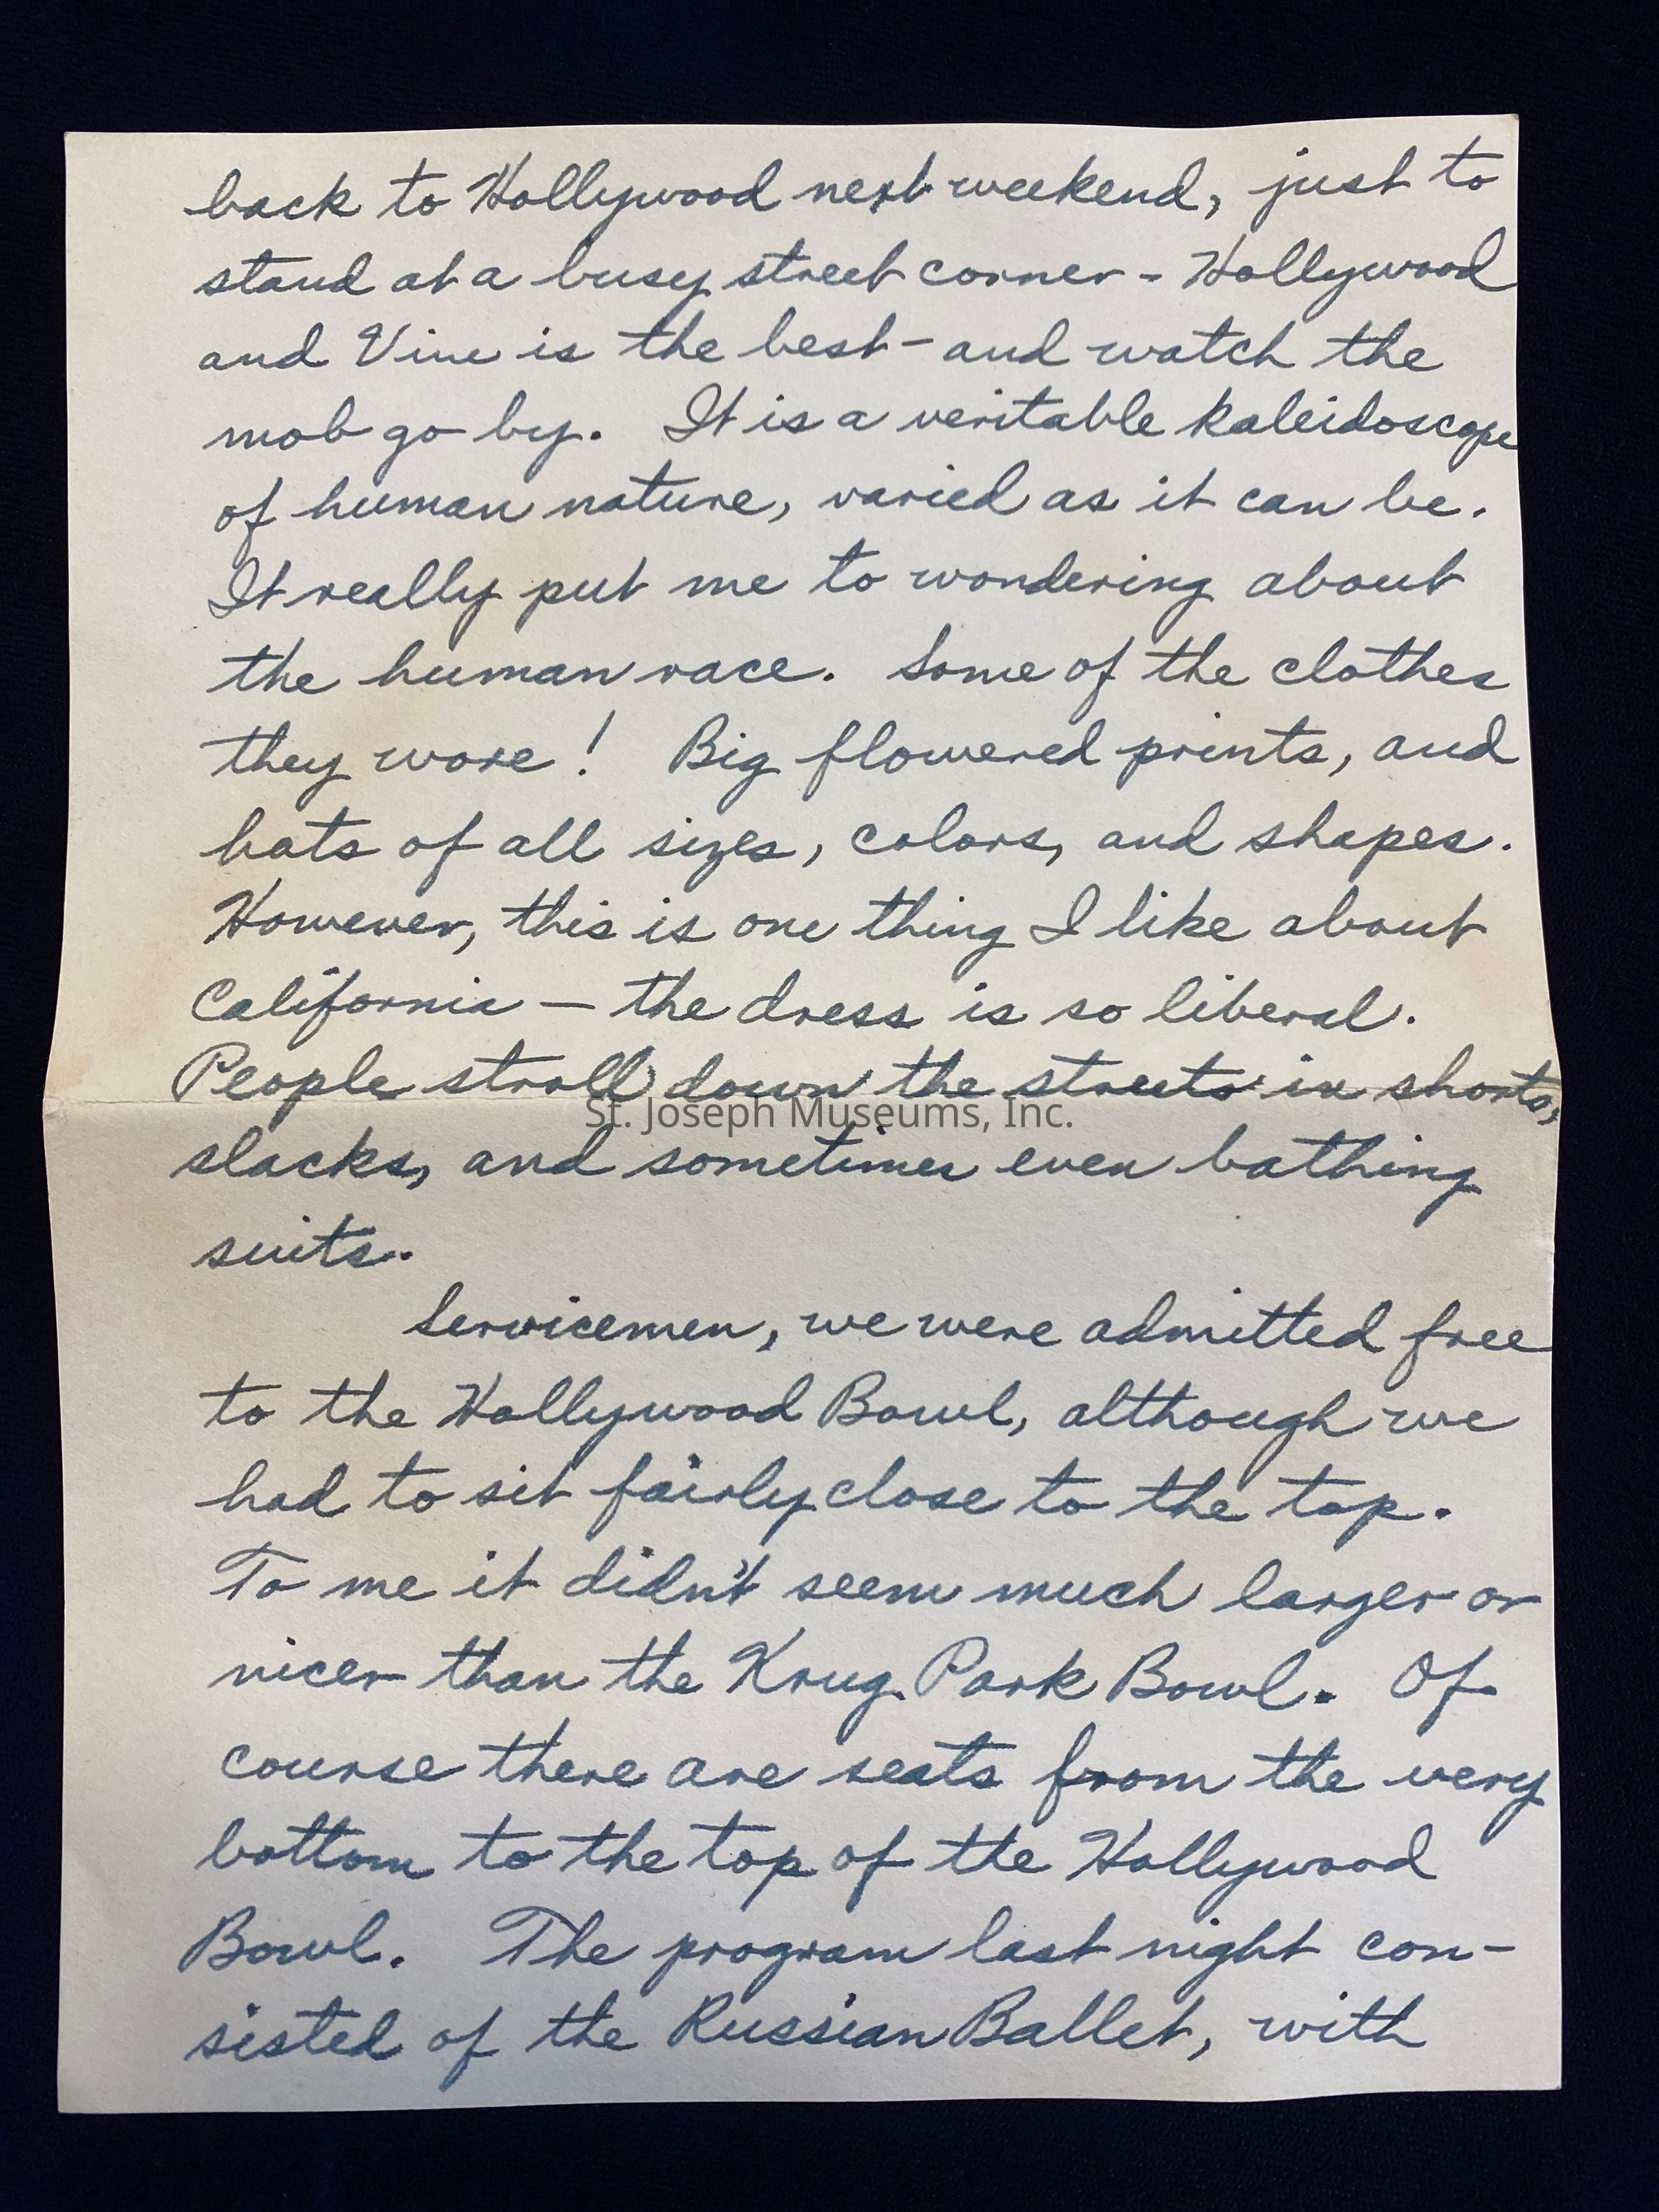 back to Hollywood next weekend, just to
stand at a busy street corner - Hollywood
and Vine is the best - and watch the
mob go by. It is a veritable kaleidoscope
of human nature, varied as it can be.
It really put me to wondering about
the human race. Some of the clothes
they wore! Big flowered prints, and
hats of all sizes, colors, and shapes.
However, this is one thing I like about
California — the dress is so liberal.
People stroll down the streets in shorts,
St. Joseph Museums, Inc.
slacks, and sometimes even bathing
suits.
Servicemen, we were admitted free
to the Hollywood Bowl, although we
had to sit fairly close to the top.
To me it didn't seem much larger or
nicer than the Krug Park Bowl. Of
course there are seats from the very
bottom to the top of the Hollywood
Bowl. The program last night con-
sisted of the Russian Ballet, with